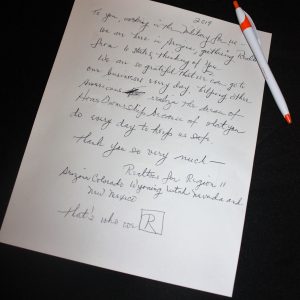 2019
To you, working in the military for us.
We are here in Arizona, gathering Realtors
from 6 states, thinking of you.
We are so grateful that we can go to
our business every day helping other
Americans realize the dream of
Home Ownership because of what you
do every day to keep us safe.
Thank you so very much —
Realtors for Region 11
Arizona Colorado Wyoming Utah Nevada and
New Mexico
That's who we R